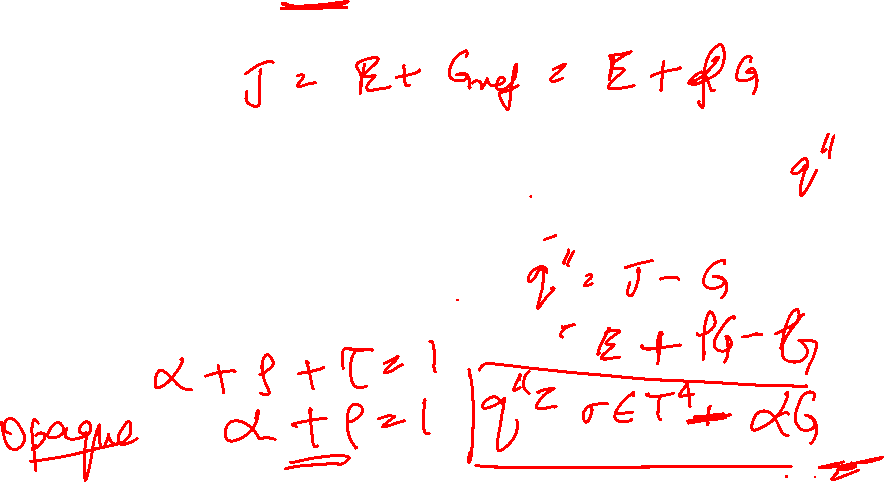 J = E + Gref = E + ρG
q"
q" = J - G
= E + ρG - G
α + ρ + τ = 1
Opaque α + ρ = 1
q" = σ∈T⁴ - αG